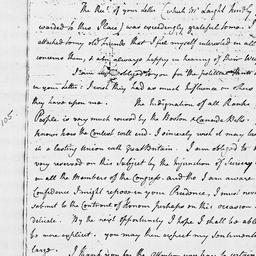 The Rec.t of your Letter (which Mr. Laight kindly
warded to this Place) was exceedingly grateful to me. I
attached to my old friends that I feel myself interested in all
concerns them, & am always happy in hearing of their Wel
I am obliged to you for the polite
in your Letter: I wish they had as much Influence on others
they have upon me. The Indignation of all Ranks
People is very much roused by the Boston & Canada Bills.
knows how the Contest will end. I sincerely wish it may
in a lasting Union with Great Britain. I am obliged to
very reserved on this Subject by the Injunction of Secrecy
on all the Members of the Congress. and tho' I am aware
Confidence I might repose in your Prudence, I must never
submit to the Controul of Honour perhaps on this occasion
delicate. By the next Opportunity I hope I shall be able
be more explicit. you may then expect my Sentiments
large. I thank you for the Attention
105.